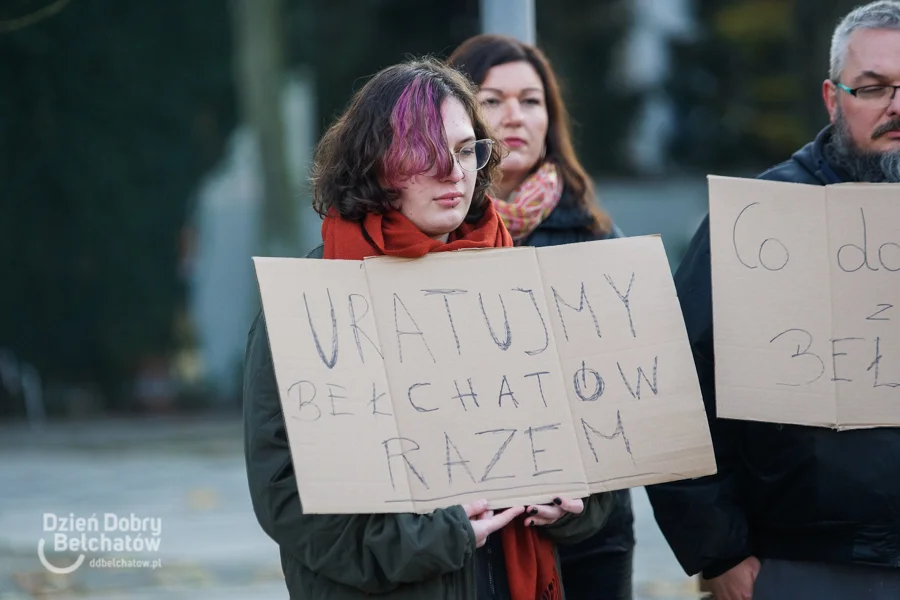 URATUJMY
BEŁCHATÓW
RAZEM
Co do
z
BEŁ
Dzień Dobry
Bełchatów
ddbelchatow.pl